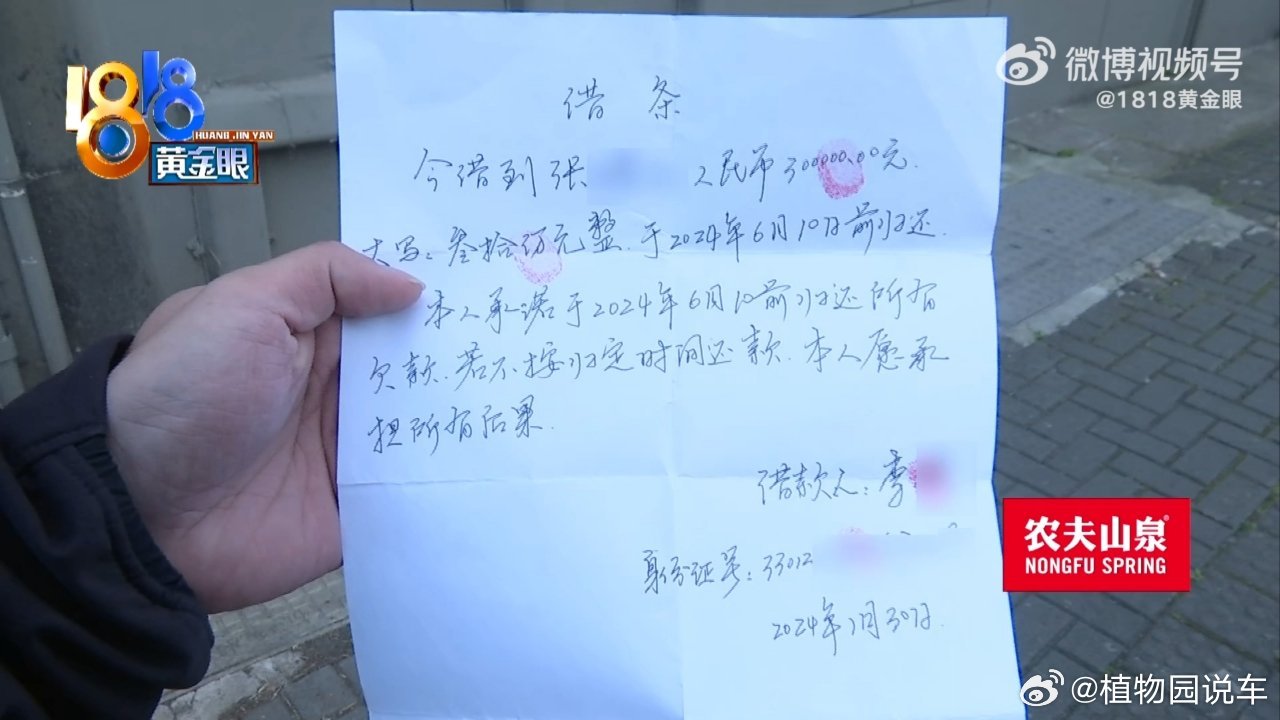 1818
HUANG JIN YAN
黄金眼
微博视频号
@1818黄金眼
借条
今借到张 人民币300000.00元
大写:叁拾万元整.于2024年6月10日前归还.
本人承诺于2024年6月10前归还所有
欠款.若不按归定时间还款.本人愿承
担所有后果.
借款人:李
农夫山泉
NONGFU SPRING
身份证号:33012
2024年1月30日.
@植物园说车